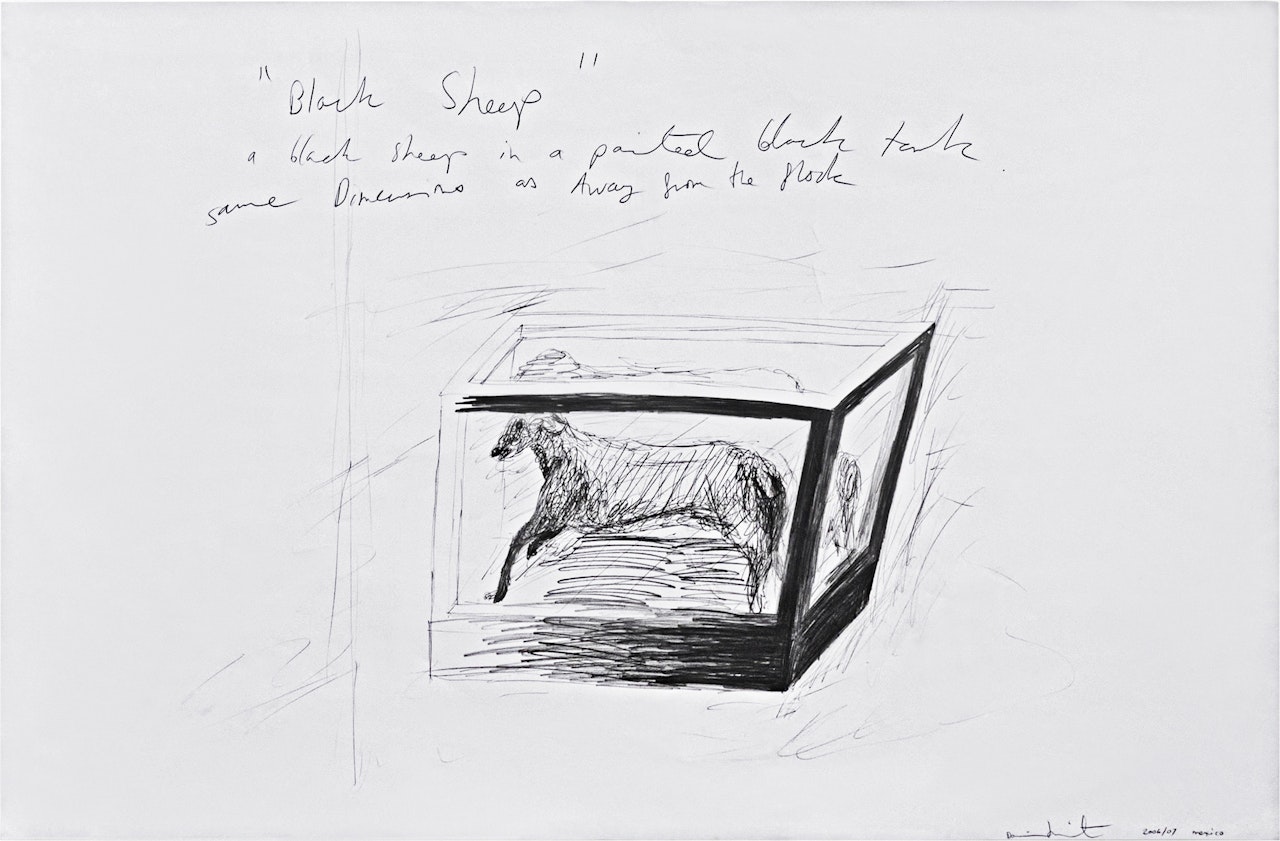 "Black Sheep"
a black sheep in a painted black tank
same Dimensions as Away from the flock
2006/07 mexico